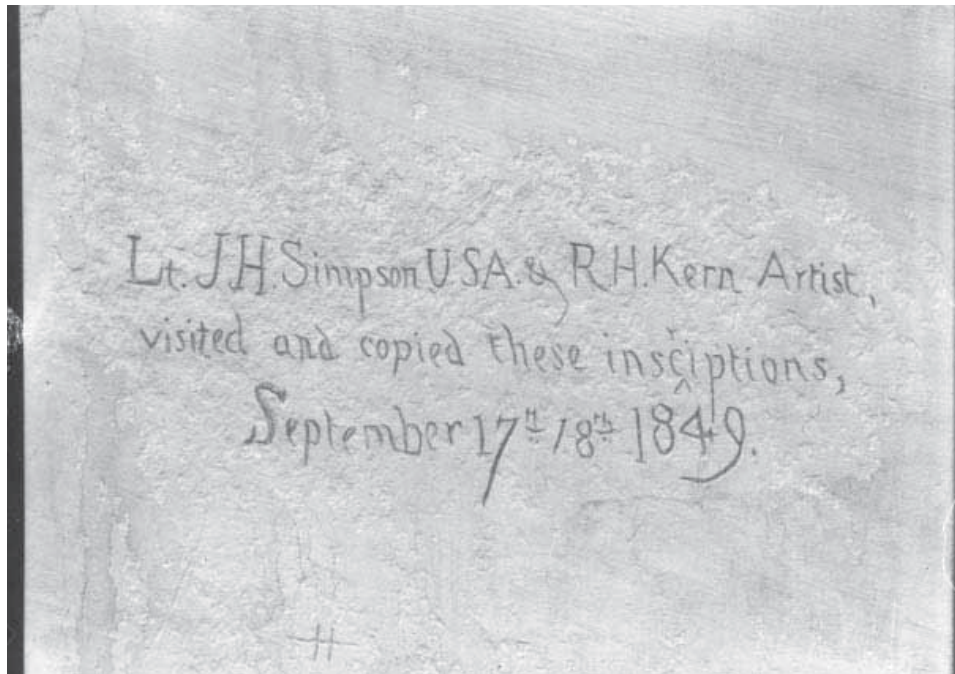 Lt. J.H. Simpson USA. & R.H. Kern Artist,
visited and copied these inscriptions,
September 17th 18th 1849.